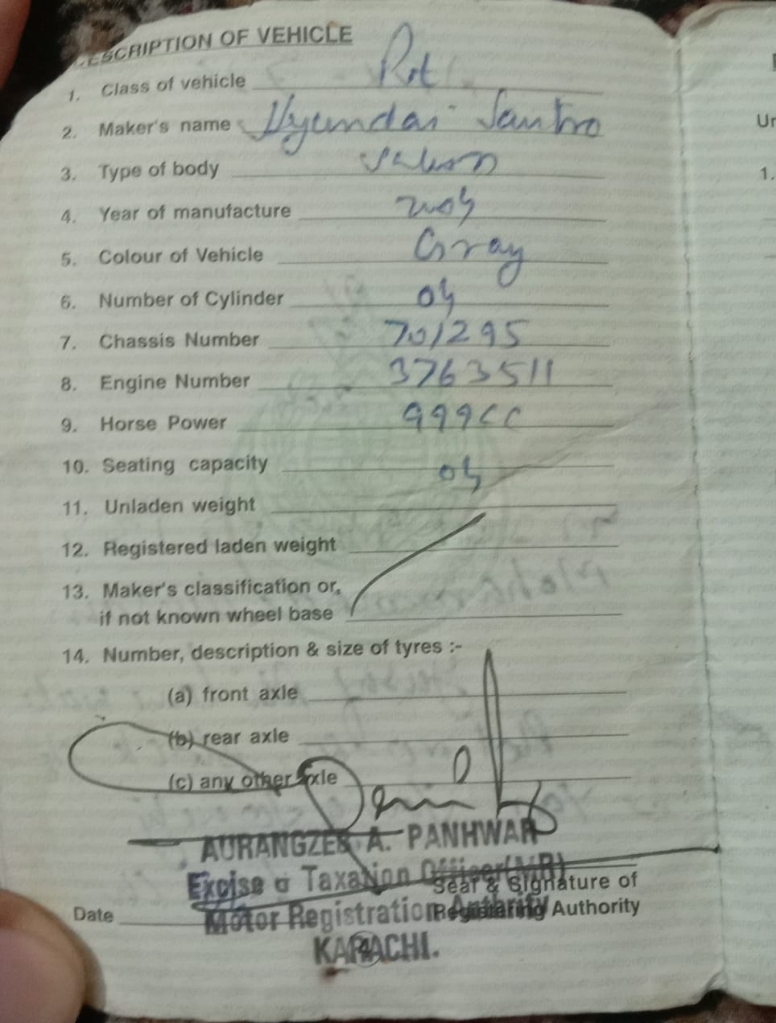 DESCRIPTION OF VEHICLE
1. Class of vehicle Pvt
2. Maker's name Hyundai Santro
3. Type of body Saloon
4. Year of manufacture 2004
5. Colour of Vehicle Gray
6. Number of Cylinder 04
7. Chassis Number 701295
8. Engine Number 3763511
9. Horse Power 999CC
10. Seating capacity 04
11. Unladen weight
12. Registered laden weight
13. Maker's classification or,
if not known wheel base
14. Number, description & size of tyres :-
(a) front axle
(b) rear axle
(c) any other axle
AURANGZEB A. PANHWAR
Excise & Taxation Officer (MR)
Seal & Signature of
Motor Registration Authority
Date Registering Authority
KARACHI.
Ur
1.